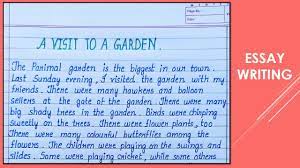 A VISIT TO A GARDEN.
The Panimal garden is the biggest in our town.
Last Sunday evening, I visited the garden with my
friends. There were many hawkers and balloon
sellers at the gate of the garden. There were many
big shady trees in the garden. Birds were chirping
sweetly on the trees. There were flower plants, too
There were many colourful butterflies among the
flowers. The children were playing on the swings and
slides. Some were playing cricket, while some others
ESSAY
WRITING